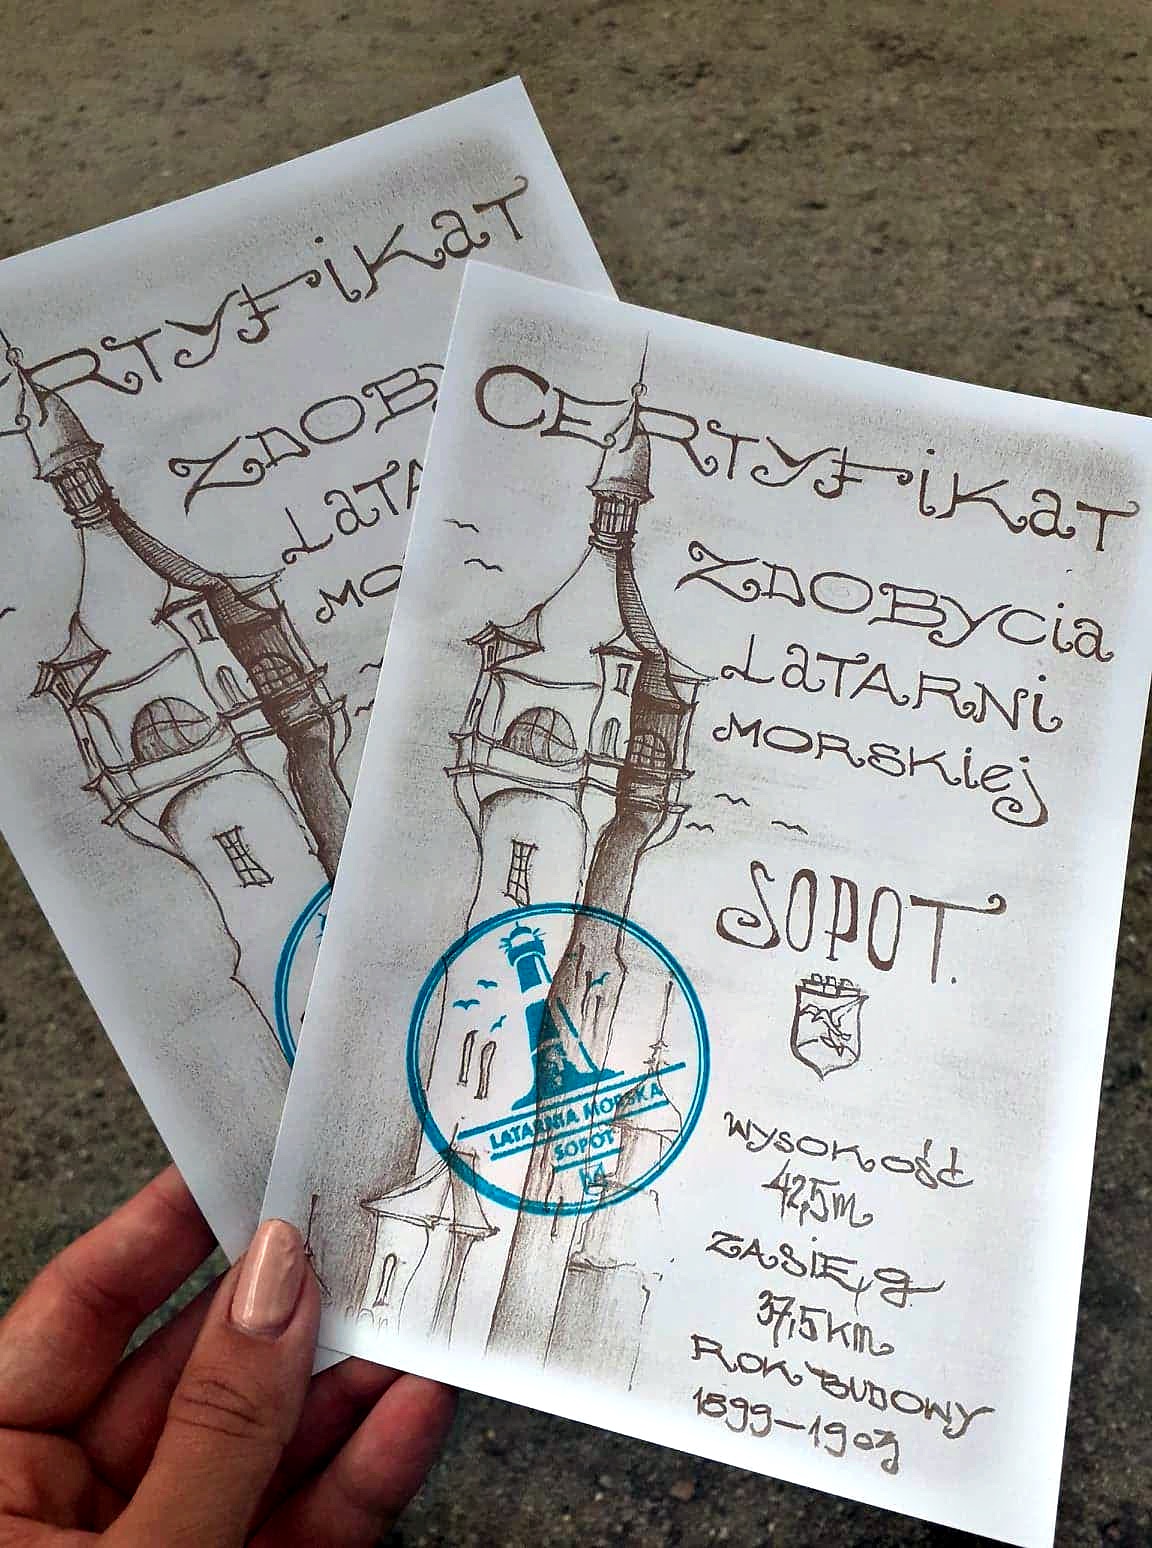 CERTYFIKAT
ZDOBY
LATA
MO
CERTYFIKAT
ZDOBYCIA
LATARNI
MORSKIEJ
SOPOT.
LATARNIA MORSKA
SOPOT
WYSOKOŚĆ
42,5m
ZASIĘG
37,5KM
ROK BUDOWY
1899-1903